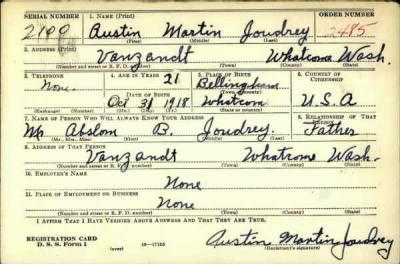 SERIAL NUMBER 1. NAME (Print) ORDER NUMBER
Austin Martin Joudrey 2485
(First) (Middle) (Last)
2. ADDRESS (Print)
Vanzandt Whatcom Wash.
(Number and street or R. F. D. number) (Town) (County) (State)
3. TELEPHONE 4. AGE IN YEARS 5. PLACE OF BIRTH 6. COUNTRY OF CITIZENSHIP
None. 21 Bellingham
DATE OF BIRTH (Town or county)
Oct 31 1918 Whatcom U.S.A
(Exchange) (Number) (Mo.) (Day) (Yr.) (State or country)
7. NAME OF PERSON WHO WILL ALWAYS KNOW YOUR ADDRESS 8. RELATIONSHIP OF THAT PERSON
Mr. Abslom B. Joudrey. Father
(Mr., Mrs., Miss) (First) (Middle) (Last)
9. ADDRESS OF THAT PERSON
Vanzandt Whatcom Wash.
(Number and street or R. F. D. number) (Town) (County) (State)
10. EMPLOYER'S NAME
None
11. PLACE OF EMPLOYMENT OR BUSINESS
None
(Number and street or R. F. D. number) (Town) (County) (State)
I AFFIRM THAT I HAVE VERIFIED ABOVE ANSWERS AND THAT THEY ARE TRUE.
REGISTRATION CARD
D. S. S. Form 1 (over) 16—17105 Austin Martin Joudrey
(Registrant's signature)